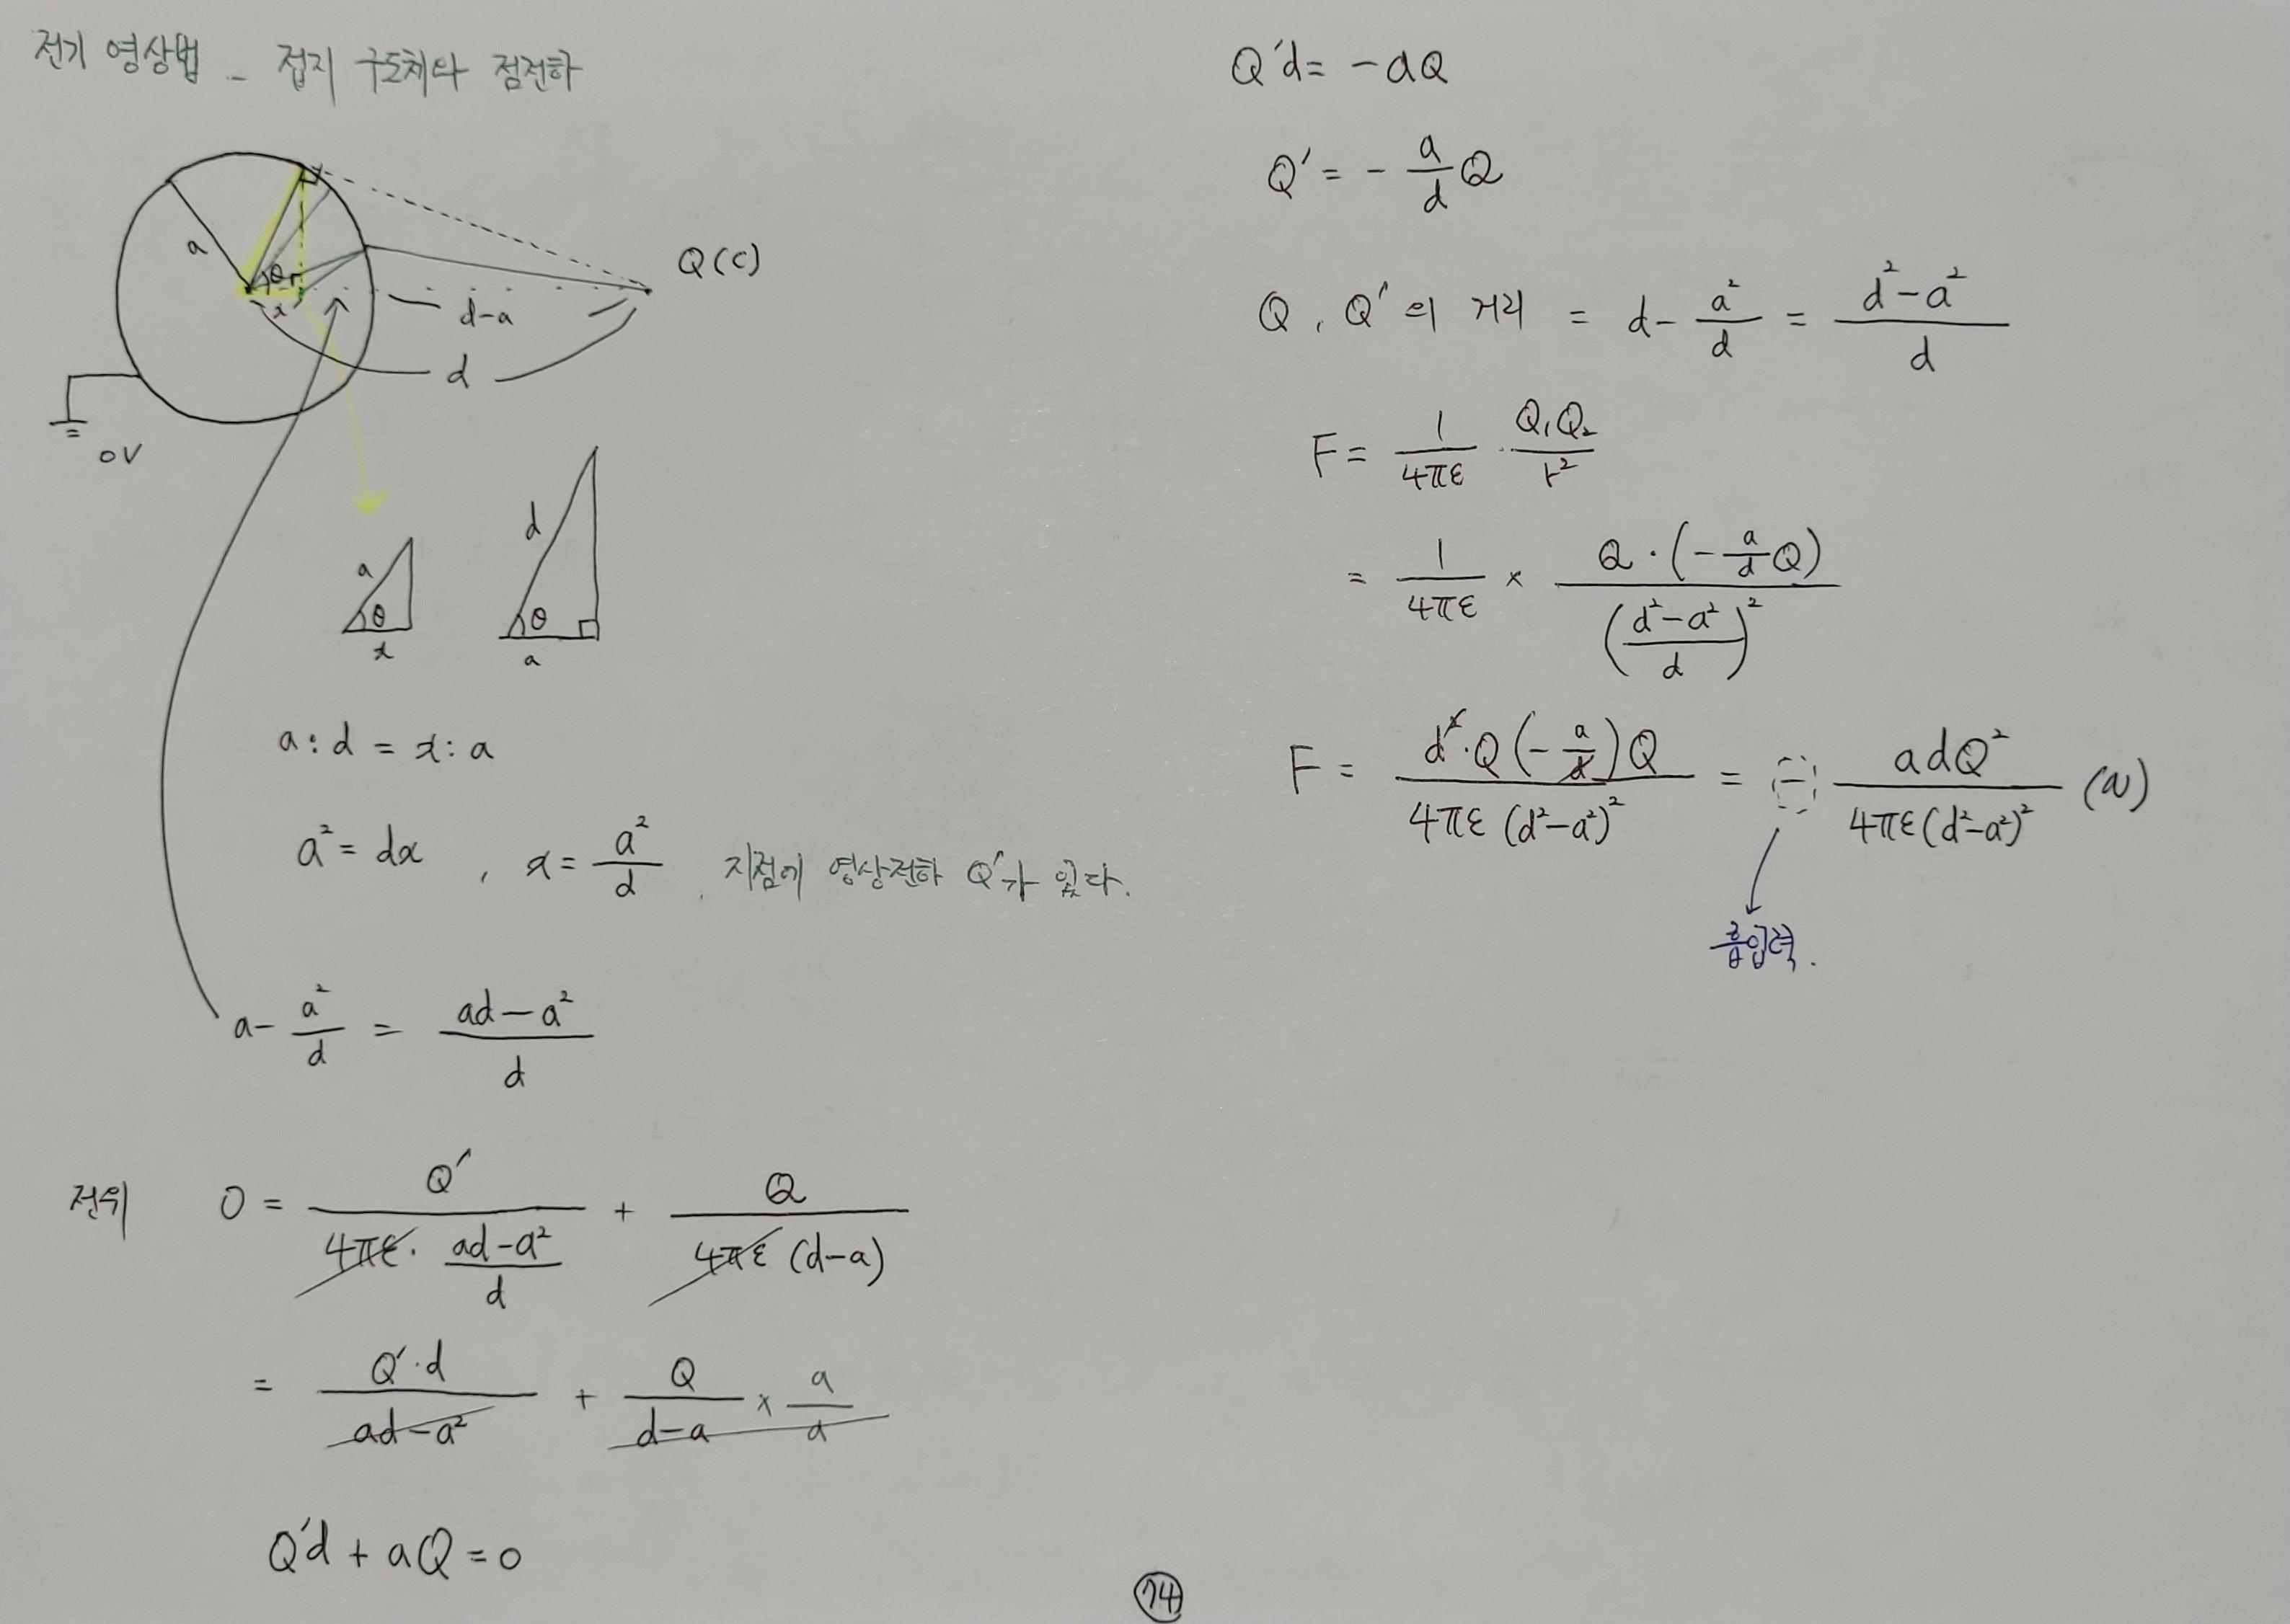 전기 영상법 - 접지 구도체와 점전하
a
θ
x
d-a
d
Q(C)
0V
a
θ
x
d
θ
a
a : d = x : a
a² = dx , x = a²/d . 지점에 영상전하 Q'가 있다.
a - a²/d = (ad - a²)/d
전위 0 = Q'/(4πε · (ad-a²)/d) + Q/(4πε (d-a))
= Q'·d/(ad-a²) + Q/(d-a) × a/a
Q'd + aQ = 0
Q'd = -aQ
Q' = - a/d Q
Q , Q' 의 거리 = d - a²/d = (d²-a²)/d
F = 1/4πε · Q₁Q₂/r²
= 1/4πε × Q · (- a/d Q) / ((d²-a²)/d)²
F = d²·Q(- a/d)Q / 4πε (d²-a²)² = - adQ² / 4πε(d²-a²)² (N)
흡입력.
74